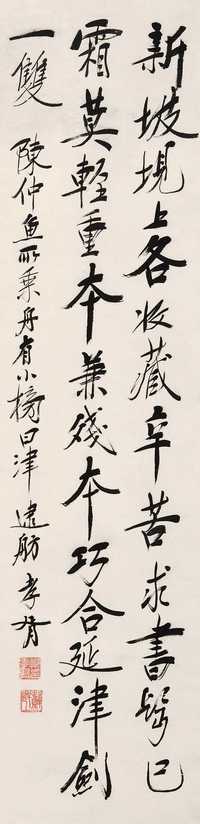 新坡塊上各收藏辛苦求書鬢已
霜莫輕重本兼殘本巧合延津劍
一雙
陳仲魚所乘舟有小榜曰津逮舫 孝胥